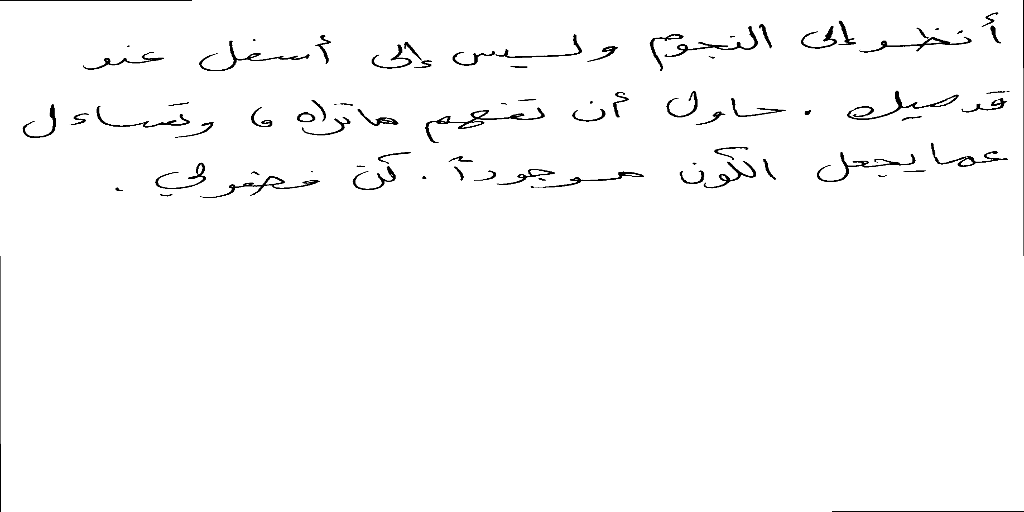 أنظر إلى النجوم وليس إلى أسفل عند
قدميك . حاول أن تفهم ماتراه ، وتساءل
عما يجعل الكون موجوداً . كن فضولي .